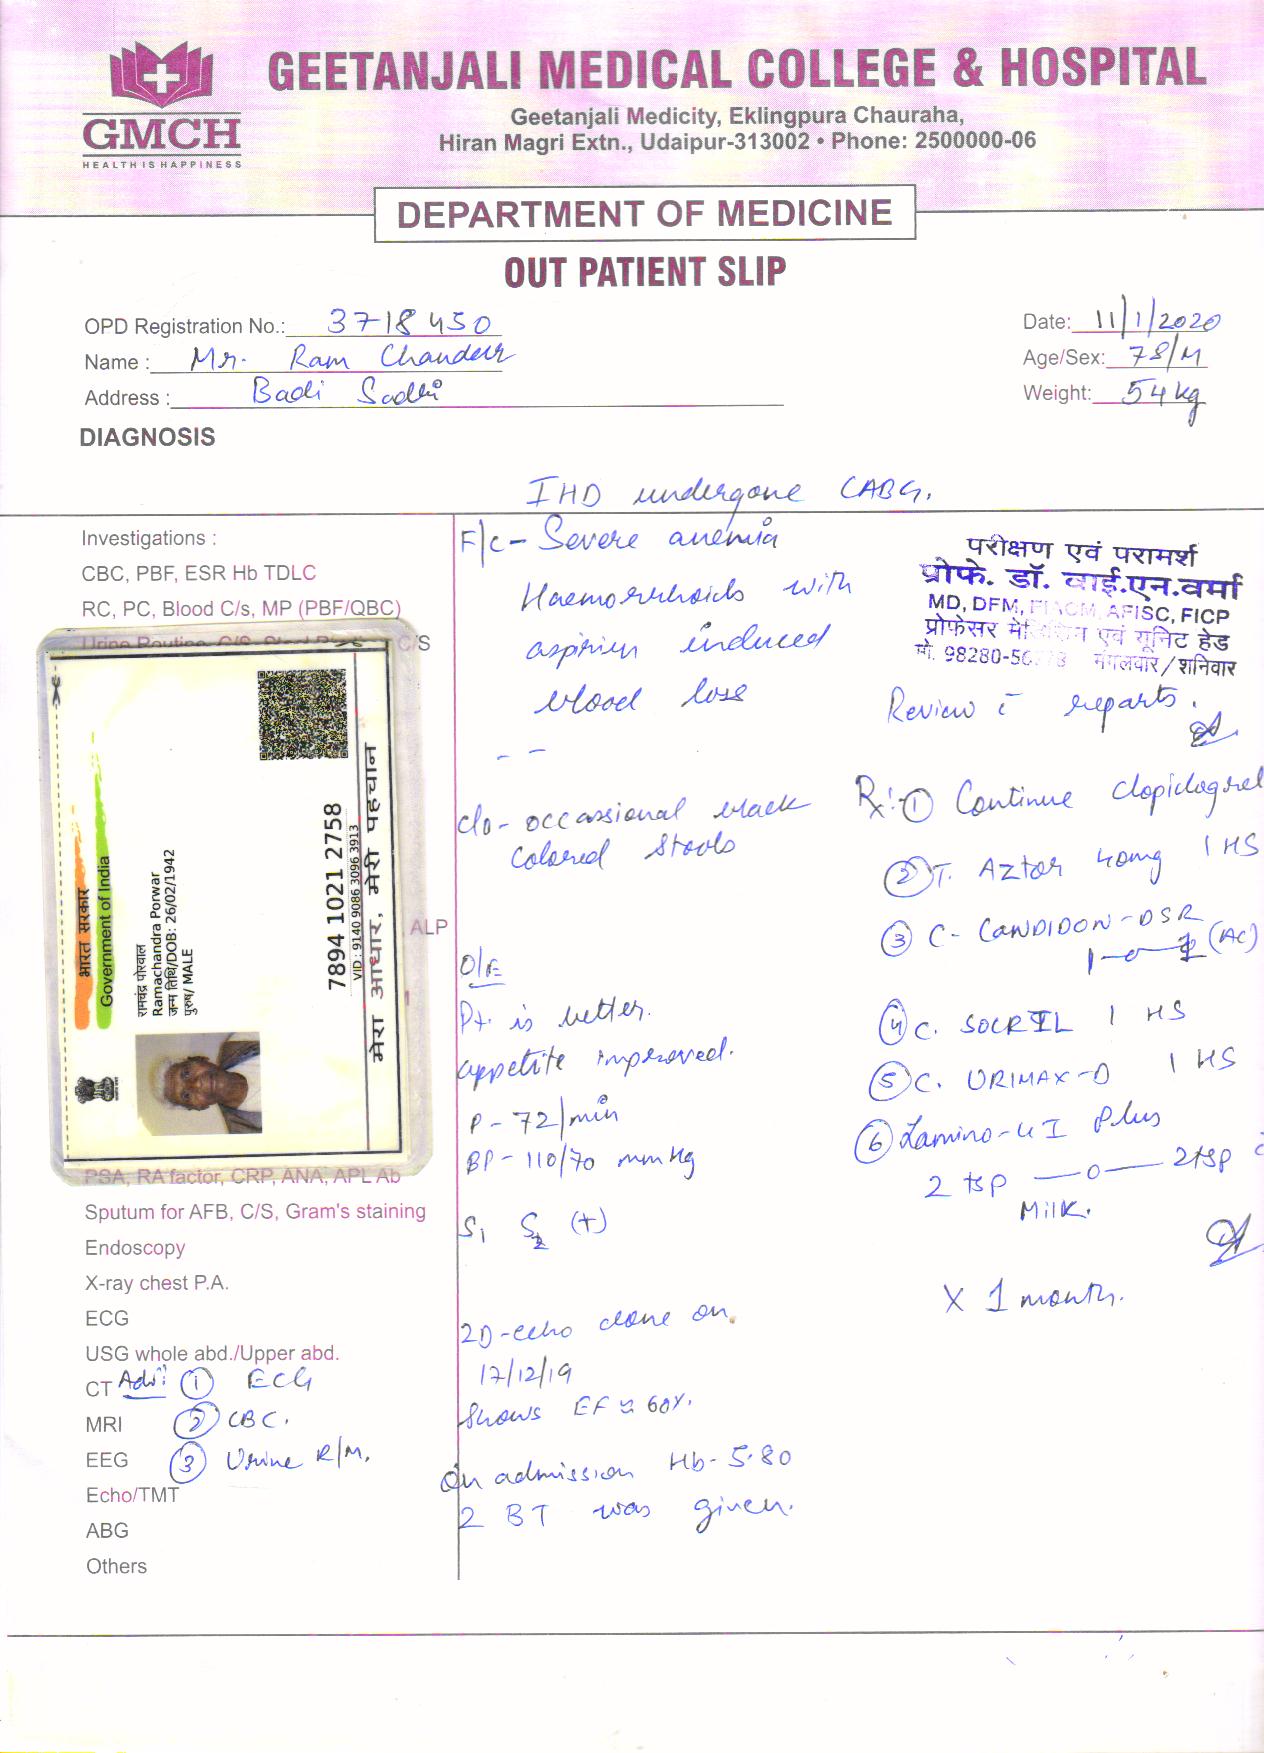 GMCH
HEALTH IS HAPPINESS
GEETANJALI MEDICAL COLLEGE & HOSPITAL
Geetanjali Medicity, Eklingpura Chauraha,
Hiran Magri Extn., Udaipur-313002 • Phone: 2500000-06
DEPARTMENT OF MEDICINE
OUT PATIENT SLIP
OPD Registration No.: 3718450
Date: 11/1/2020
Name : Mr. Ram Chander
Age/Sex: 78/M
Address : Badi Sadri
Weight: 54 kg
DIAGNOSIS
IHD undergone CABG.
Investigations :
CBC, PBF, ESR Hb TDLC
RC, PC, Blood C/s, MP (PBF/QBC)
Urine Routine, C/S, Stool C/S
ALP
भारत सरकार
Government of India
रामचंद्र पोरवाल
Ramachandra Porwar
जन्म तिथि/DOB: 26/02/1942
पुरुष/ MALE
7894 1021 2758
VID : 9140 9086 3096 3913
मेरा आधार, मेरी पहचान
PSA, RA factor, CRP, ANA, APL Ab
Sputum for AFB, C/S, Gram's staining
Endoscopy
X-ray chest P.A.
ECG
USG whole abd./Upper abd.
CT Adv: ① ECG
MRI ② CBC.
EEG ③ Urine R/M.
Echo/TMT
ABG
Others
F/c - Severe anemia
Haemorrhoids with
aspirin induced
blood loss
- -
c/o - occassional black
colored stools
O/E
Pt. is better.
appetite improved.
P - 72/min
BP - 110/70 mmHg
S1 S2 (+)
2D-echo done on
17/12/19
Shows EF ≈ 60%.
On admission Hb - 5.80
2 BT was given.
परीक्षण एवं परामर्श
प्रोफे. डॉ. वाई.एन.वर्मा
MD, DFM, FIACM, AFISC, FICP
प्रोफेसर मेडिसिन एवं यूनिट हेड
मो. 98280-56 मंगलवार/शनिवार
Review c̄ reports.
Rx: ① Continue clopidogrel
② T. Aztor 40mg 1 HS
③ C- CANDIDON-DSR
1—o—1 (AC)
④ C. SOCRIL 1 HS
⑤ C. URIMAX-D 1 HS
⑥ Lamino-GI Plus
2 tsp —o— 2tsp c̄
Milk.
X 1 month.